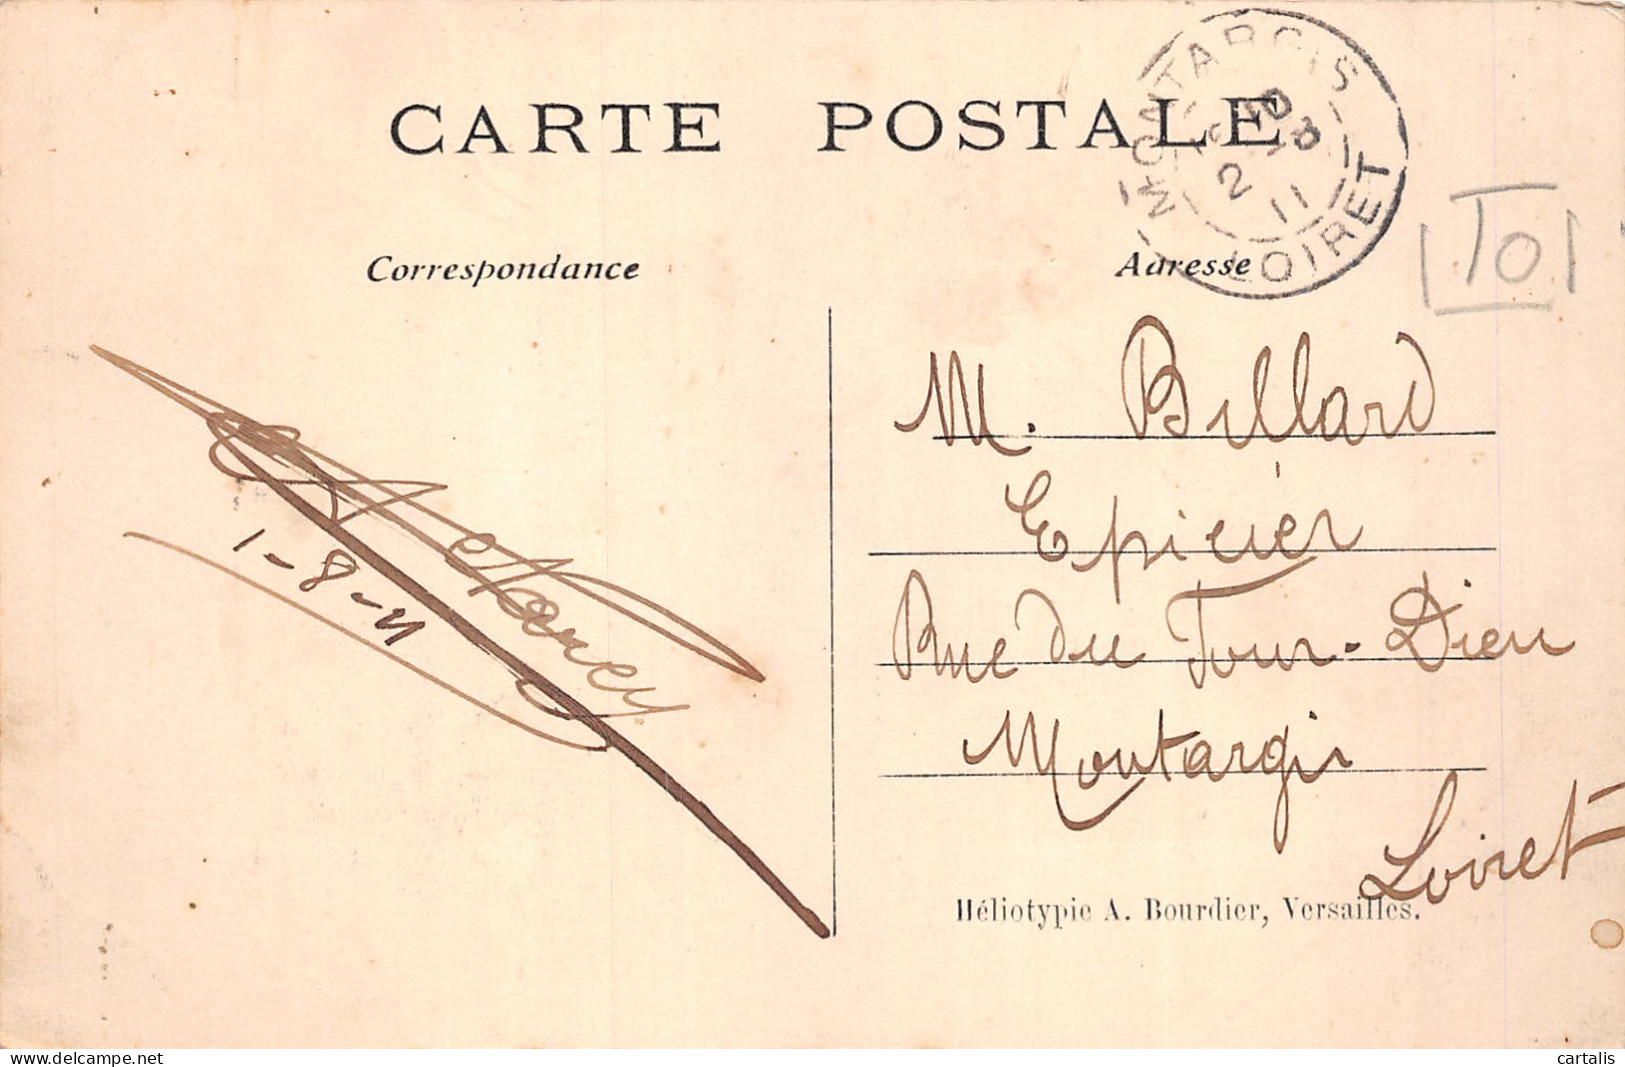 CARTE POSTALE
MONTARGIS
2 - 8
11
LOIRET
TO
Correspondance
Adresse
M. Billard
Epicier
Rue du Tour-Dieu
Montargis
Loiret
1-8-11
Héliotypie A. Bourdier, Versailles.
delcampe.net
cartalis